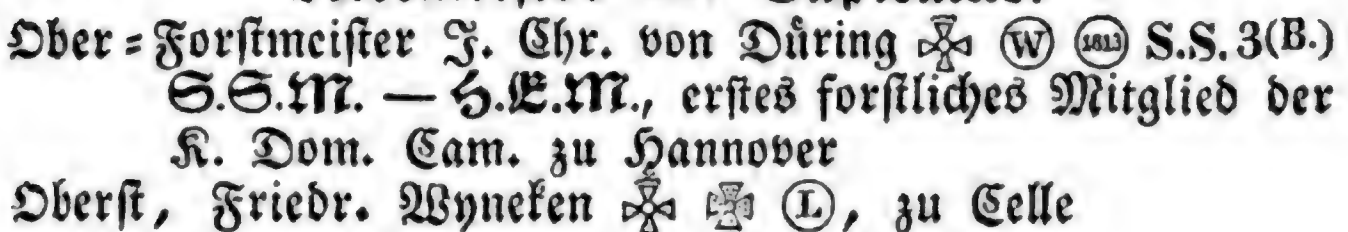 Ober-Forstmeister J. Chr. von Düring ✠ Ⓦ (1813) S.S. 3(B.)
S.S.M. — H.E.M., erstes forstliches Mitglied der
K. Dom. Cam. zu Hannover
Oberst, Friedr. Wyneken ✠ ✠ Ⓛ, zu Celle